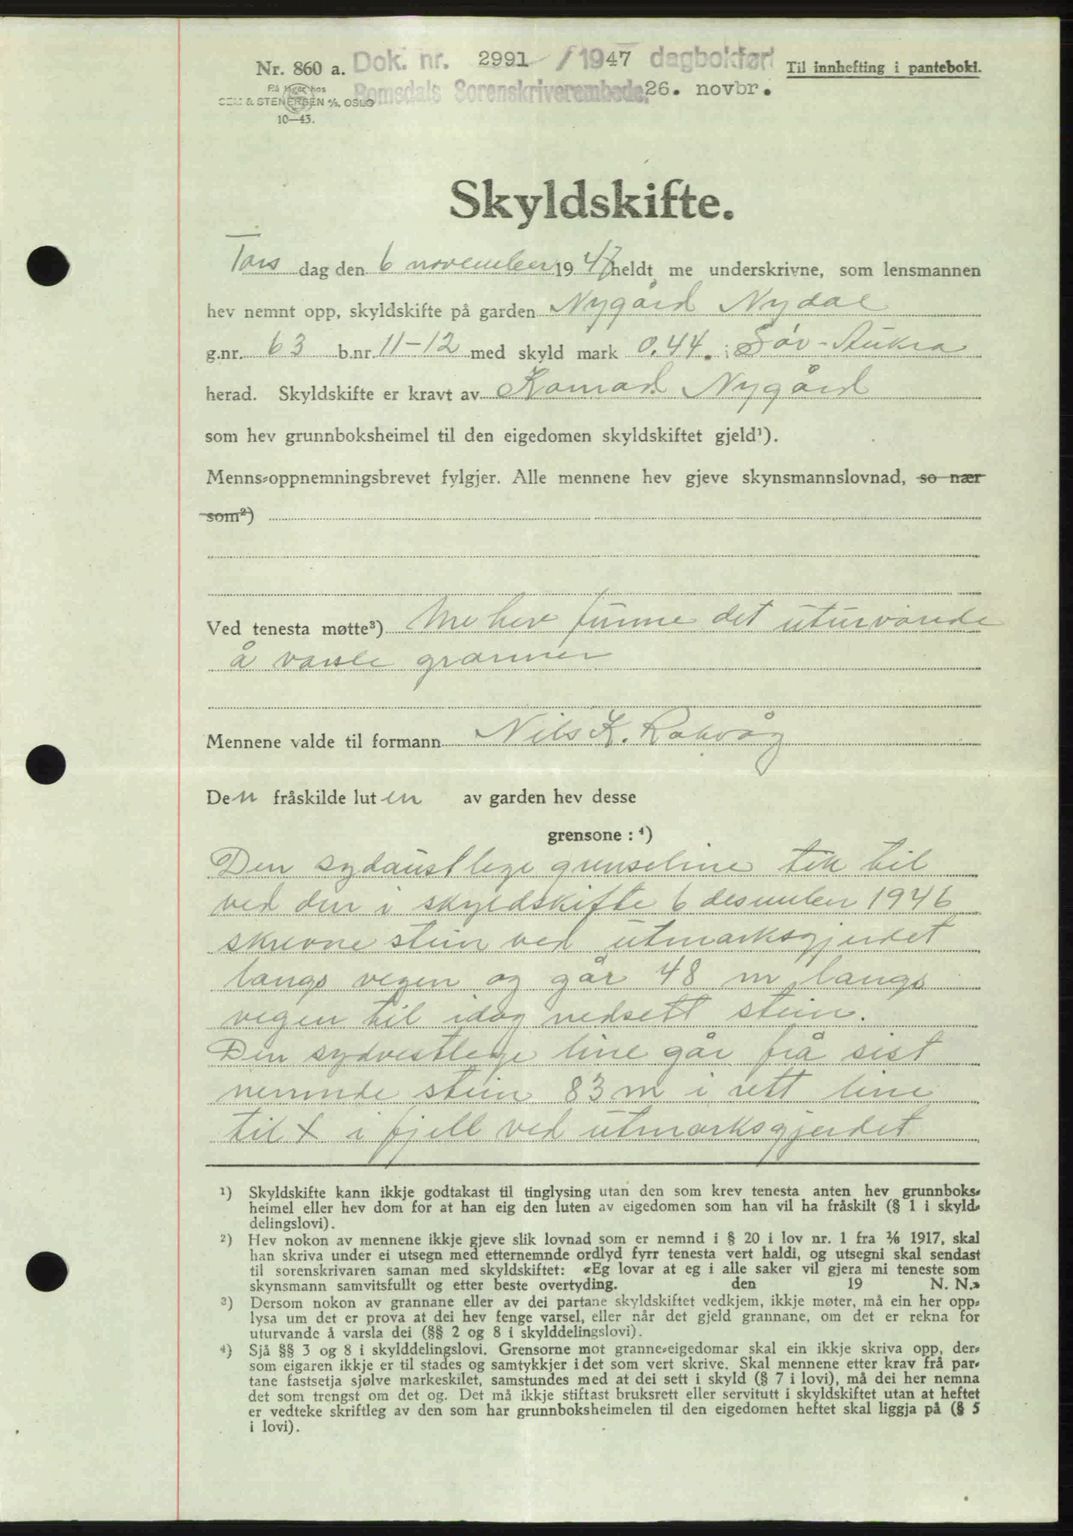 Nr. 860 a. Dok. nr. 2991 / 1947 dagbokført Til innhefting i pantebok.
På lager hos
SEM & STENERSEN A/S, OSLO Romsdals Sorenskriverembede, 26. novbr.
10—43.
Skyldskifte.
Tors dag den 6 november 1947 heldt me underskrivne, som lensmannen
hev nemnt opp, skyldskifte på garden Nygård Nydal
g.nr. 63 b.nr. 11-12 med skyld mark 0.44. i Sør-Aukra
herad. Skyldskifte er kravt av Konrad Nygård
som hev grunnboksheimel til den eigedomen skyldskiftet gjeld¹).
Menns-oppnemningsbrevet fylgjer. Alle mennene hev gjeve skynsmannslovnad, so nær
som²)
Ved tenesta møtte³) Me hev funne det uturvande
å varsle grannar
Mennene valde til formann Nils K. Rakvåg
Den fråskilde luten av garden hev desse
grensone : ⁴)
Den sydaustlege grenseline tek til
ved den i skyldskifte 6 desember 1946
skrevne stein ved utmarksgjerdet
langs vegen og går 48 m langs
vegen til idag nedsett stein.
Den sydvestlege line går frå sist
nemnde stein 83 m i rett line
til X i fjell ved utmarksgjerdet
¹) Skyldskifte kann ikkje godtakast til tinglysing utan den som krev tenesta anten hev grunnboks-
heimel eller hev dom for at han eig den luten av eigedomen som han vil ha fråskilt (§ 1 i skyld-
delingslovi).
²) Hev nokon av mennene ikkje gjeve slik lovnad som er nemnd i § 20 i lov nr. 1 fra 1/6 1917, skal
han skriva under ei utsegn med etternemnde ordlyd fyrr tenesta vert haldi, og utsegni skal sendast
til sorenskrivaren saman med skyldskiftet: «Eg lovar at eg i alle saker vil gjera mi teneste som
skynsmann samvitsfullt og etter beste overtyding. den 19 N. N.»
³) Dersom nokon av grannane eller av dei partane skyldskiftet vedkjem, ikkje møter, må ein her opp-
lysa um det er prova at dei hev fenge varsel, eller når det gjeld grannane, om det er rekna for
uturvande å varsla dei (§§ 2 og 8 i skylddelingslovi).
⁴) Sjå §§ 3 og 8 i skylddelingslovi. Grensorne mot granne-eigedomar skal ein ikkje skriva opp, der-
som eigaren ikkje er til stades og samtykkjer i det som vert skrive. Skal mennene etter krav frå par-
tane fastsetja sjølve markeskilet, samstundes med at dei sett i skyld (§ 7 i lovi), må dei her nemna
det som trengst om det og. Det må ikkje stiftast bruksrett eller servitutt i skyldskiftet utan at heftet
er vedteke skriftleg av den som har grunnboksheimelen til den eigedomen heftet skal liggja på (§ 5
i lovi).